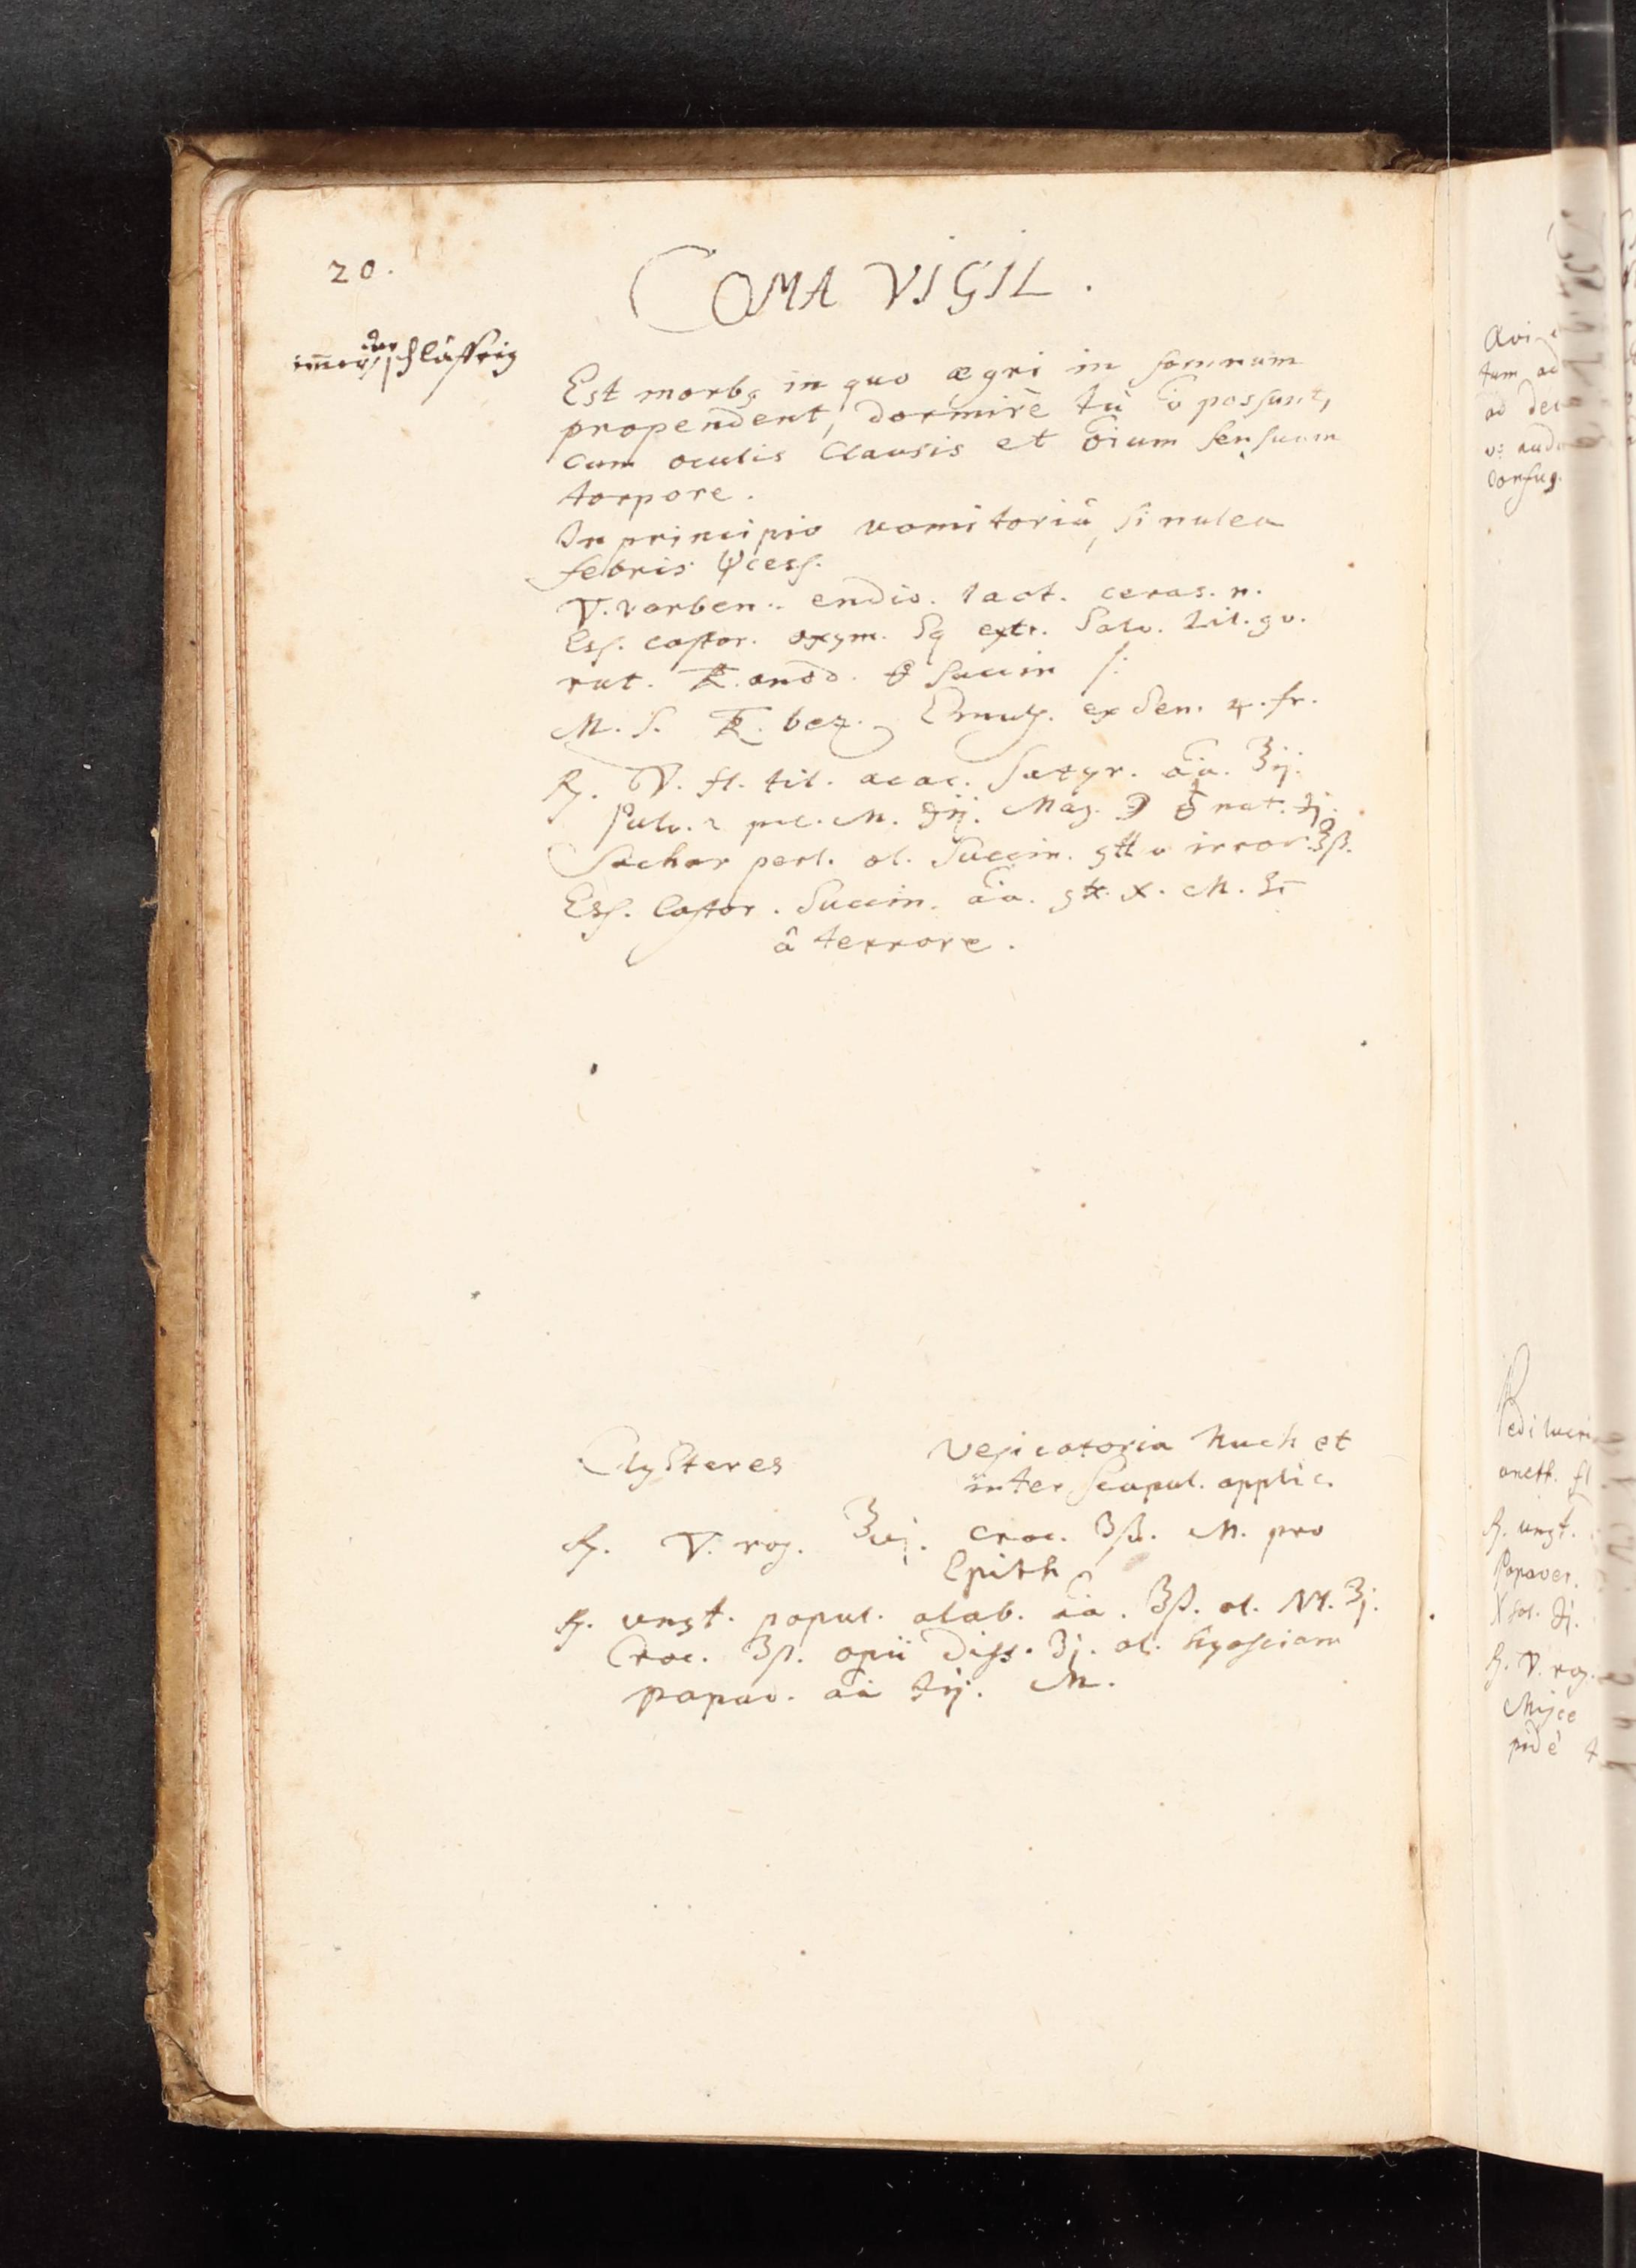 20.
COMA VIGIL.
im̅er der schläffrig
Est morbꝯ in quo ægri in somnum
propendent, dormire tn̄ ō possunt,
cum oculis clausis et o̅ium sensuum
torpore.
In principio vomitoriũ, si nulea
febris
▽. verben. endiv. lact. ceras. n.
Ess. castor. oxym. Sq extr. Salv. Lil. gv.
rut. anod. succin
M. S. bez. Emuls. ex Sem. 4. fr.
℞. ▽. fl. til. acac. Satyr. a̅a. ℥ij.
Pulv. M. Mag. nat.
Sachar perl. ol. Succin. gtt v irror. ℥ß.
Ess. Castor. Succin. a̅a. gtt. X. M.
â terrore.
Clysteres
Vesicatoria Nuch et
inter Scapul. applic.
℞. ▽. ros. ℥vj. croc. ʒß. M. pro
Epith
℞. ungt. popul. alab. a̅a. ℥ß. ol. NM. ʒj.
Croc. ʒß. opii diss. ʒj. ol. hyosciam
papav. a̅a M.
Pediluvi
aneth. fl
℞. ungt.
Papaver.
℞. ▽. ros.
Misce